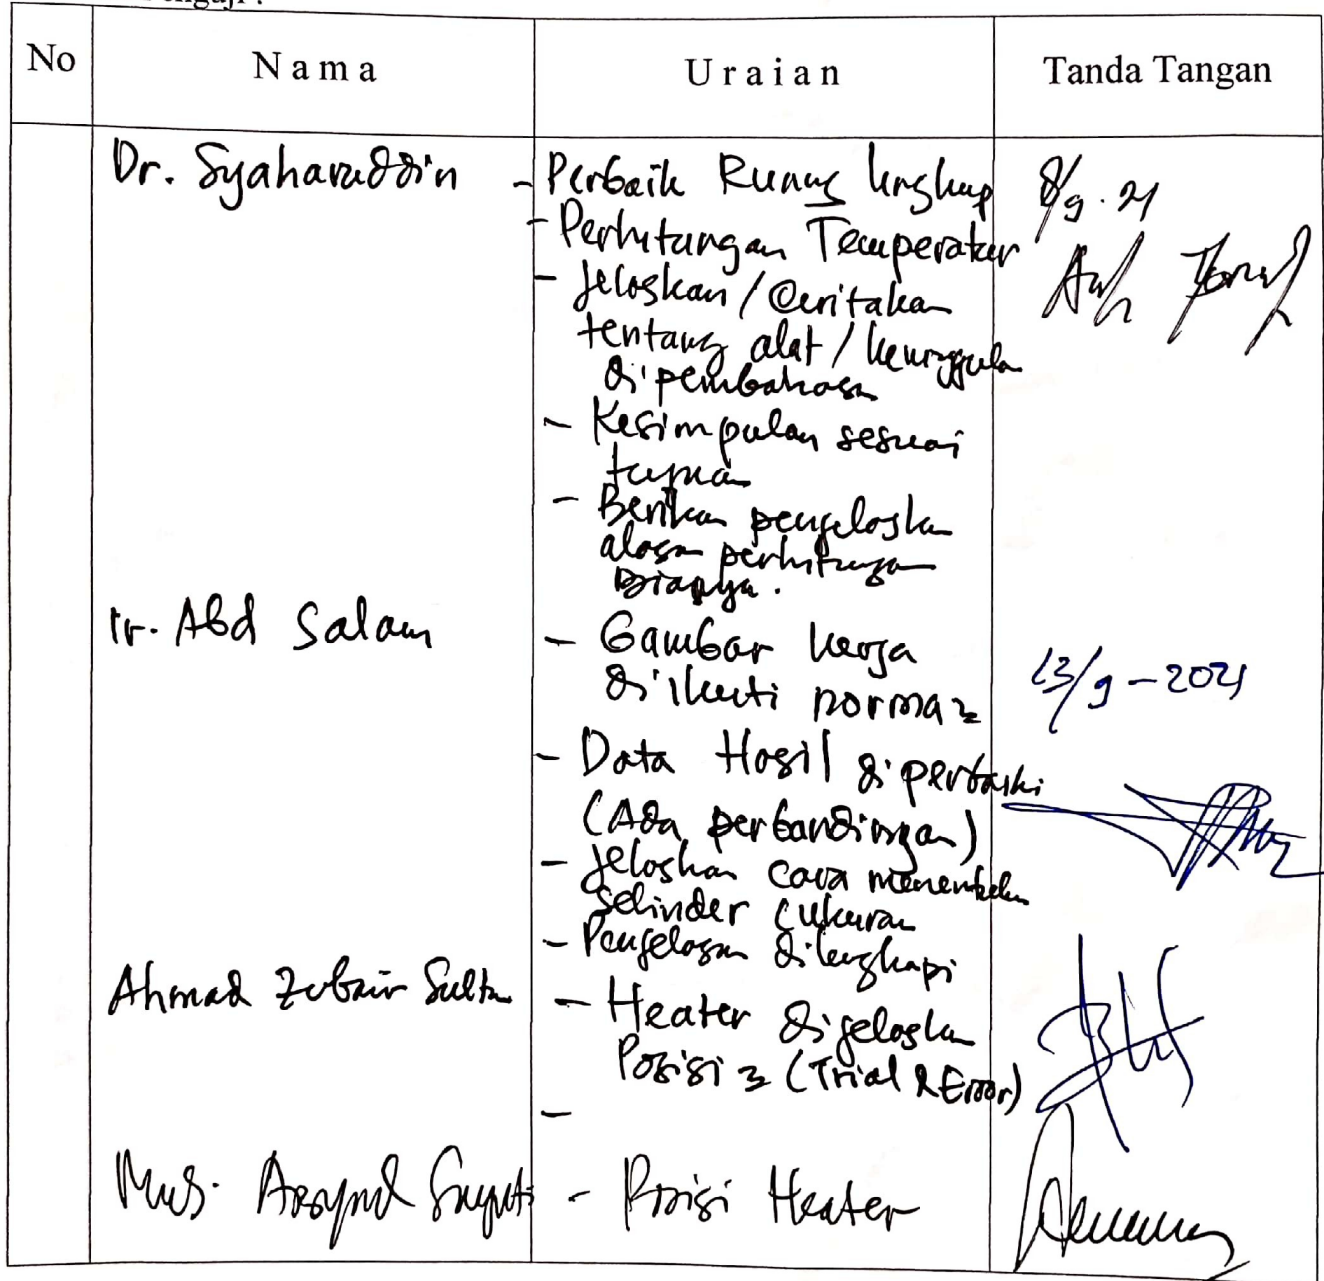 No Nama Uraian Tanda Tangan
Dr. Syaharuddin - Perbaik Ruang lingkup 8/9.21
- Perhitungan Temperatur
- Jelaskan / Ceritakan
tentang alat / keunggula
di pembahasan
- Kesimpulan sesuai
tujuan
- Berikan penjelaskan
alasan perhitungan
Biayanya.
Ir. Abd Salam - Gambar kerja
diikuti norma2 13/9-2021
- Data Hasil diperbaiki
(Ada perbandingan)
- Jelaskan cara menentukan
selinder (ukuran
- Penjelasan dilengkapi
Ahmad Zubair Sultan - Heater dijelaskan
Posisi2 (Trial & Error)
-
Muh. Arsyad Suyuti - Posisi Heater